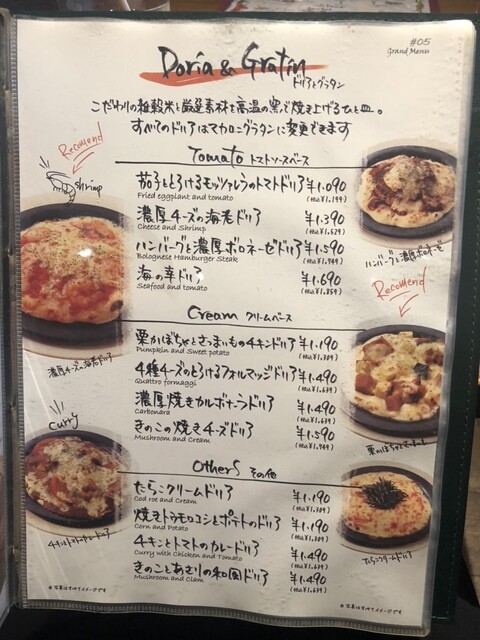 #05
Grand Menu
Doria & Gratin
ドリア&グラタン
こだわりの雑穀米と厳選素材を高温の窯で焼き上げるひと皿。
すべてのドリアはマカロニグラタンに変更できます
Recomend
shrimp
Tomato トマトソースベース
茄子ととろけるモッツァレラのトマトドリア ¥1.090
Fried eggplant and tomato (税込¥1.199)
濃厚チーズの海老ドリア ¥1.390
Cheese and Shrimp (税込¥1.529)
ハンバーグと濃厚ボロネーゼドリア ¥1.590
Bolognese Hamburger Steak (税込¥1.749)
海の幸ドリア ¥1.690
Seafood and tomato (税込¥1.859)
ハンバーグと濃厚ボロネーゼ
濃厚チーズの海老ドリア
Recomend
Cream クリームベース
栗かぼちゃとさつまいものチキンドリア ¥1.190
Pumpkin and Sweet potato (税込¥1.309)
4種チーズのとろけるフォルマッジドリア ¥1.490
Quattro formaggi (税込¥1.639)
濃厚焼きカルボナーラドリア ¥1.490
Carbonara (税込¥1.639)
きのこの焼きチーズドリア ¥1.590
Mushroom and Cream (税込¥1.749)
Curry
Others その他
たらこクリームドリア ¥1.190
Cod rot and Cream (税込¥1.309)
焼きトウモロコシとポテトのドリア ¥1.190
Corn and Potato (税込¥1.309)
チキンとトマトのカレードリア ¥1.490
Curry with Chicken and Tomato (税込¥1.639)
きのことあさりの和風ドリア ¥1.490
Mushroom and Clam (税込¥1.639)
チキントマトカレードリア
たらこクリームドリア
※写真はすべてイメージです
※写真はすべてイメージです